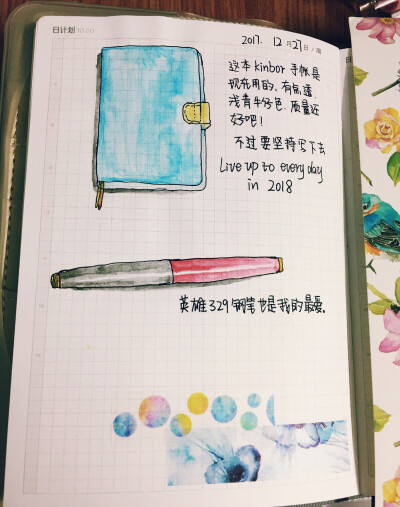 日计划 TO DO
2017. 12月27日/周
这本kinbor手帐是
现在用的。有点透
浅青牛仔色.质量还
好吧!
不过要坚持写下去
Live up to every day
in 2018
英雄329钢笔也是我的最爱。